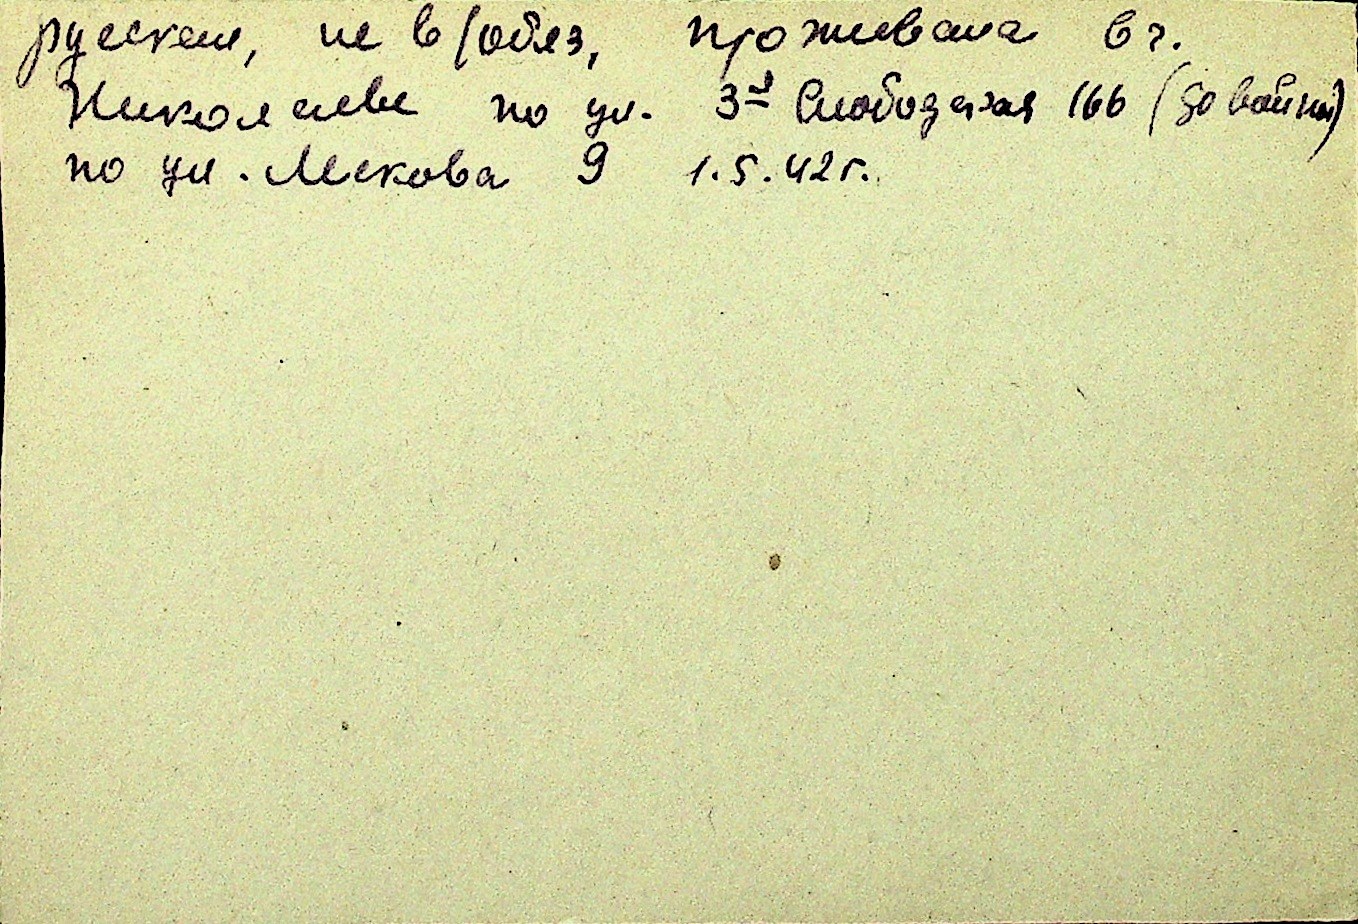 русская, не в/обяз, проживала в г.
Николаеве по ул. 3я Слободская 166 (до войны)
по ул. Лескова 9 1.5.42г.